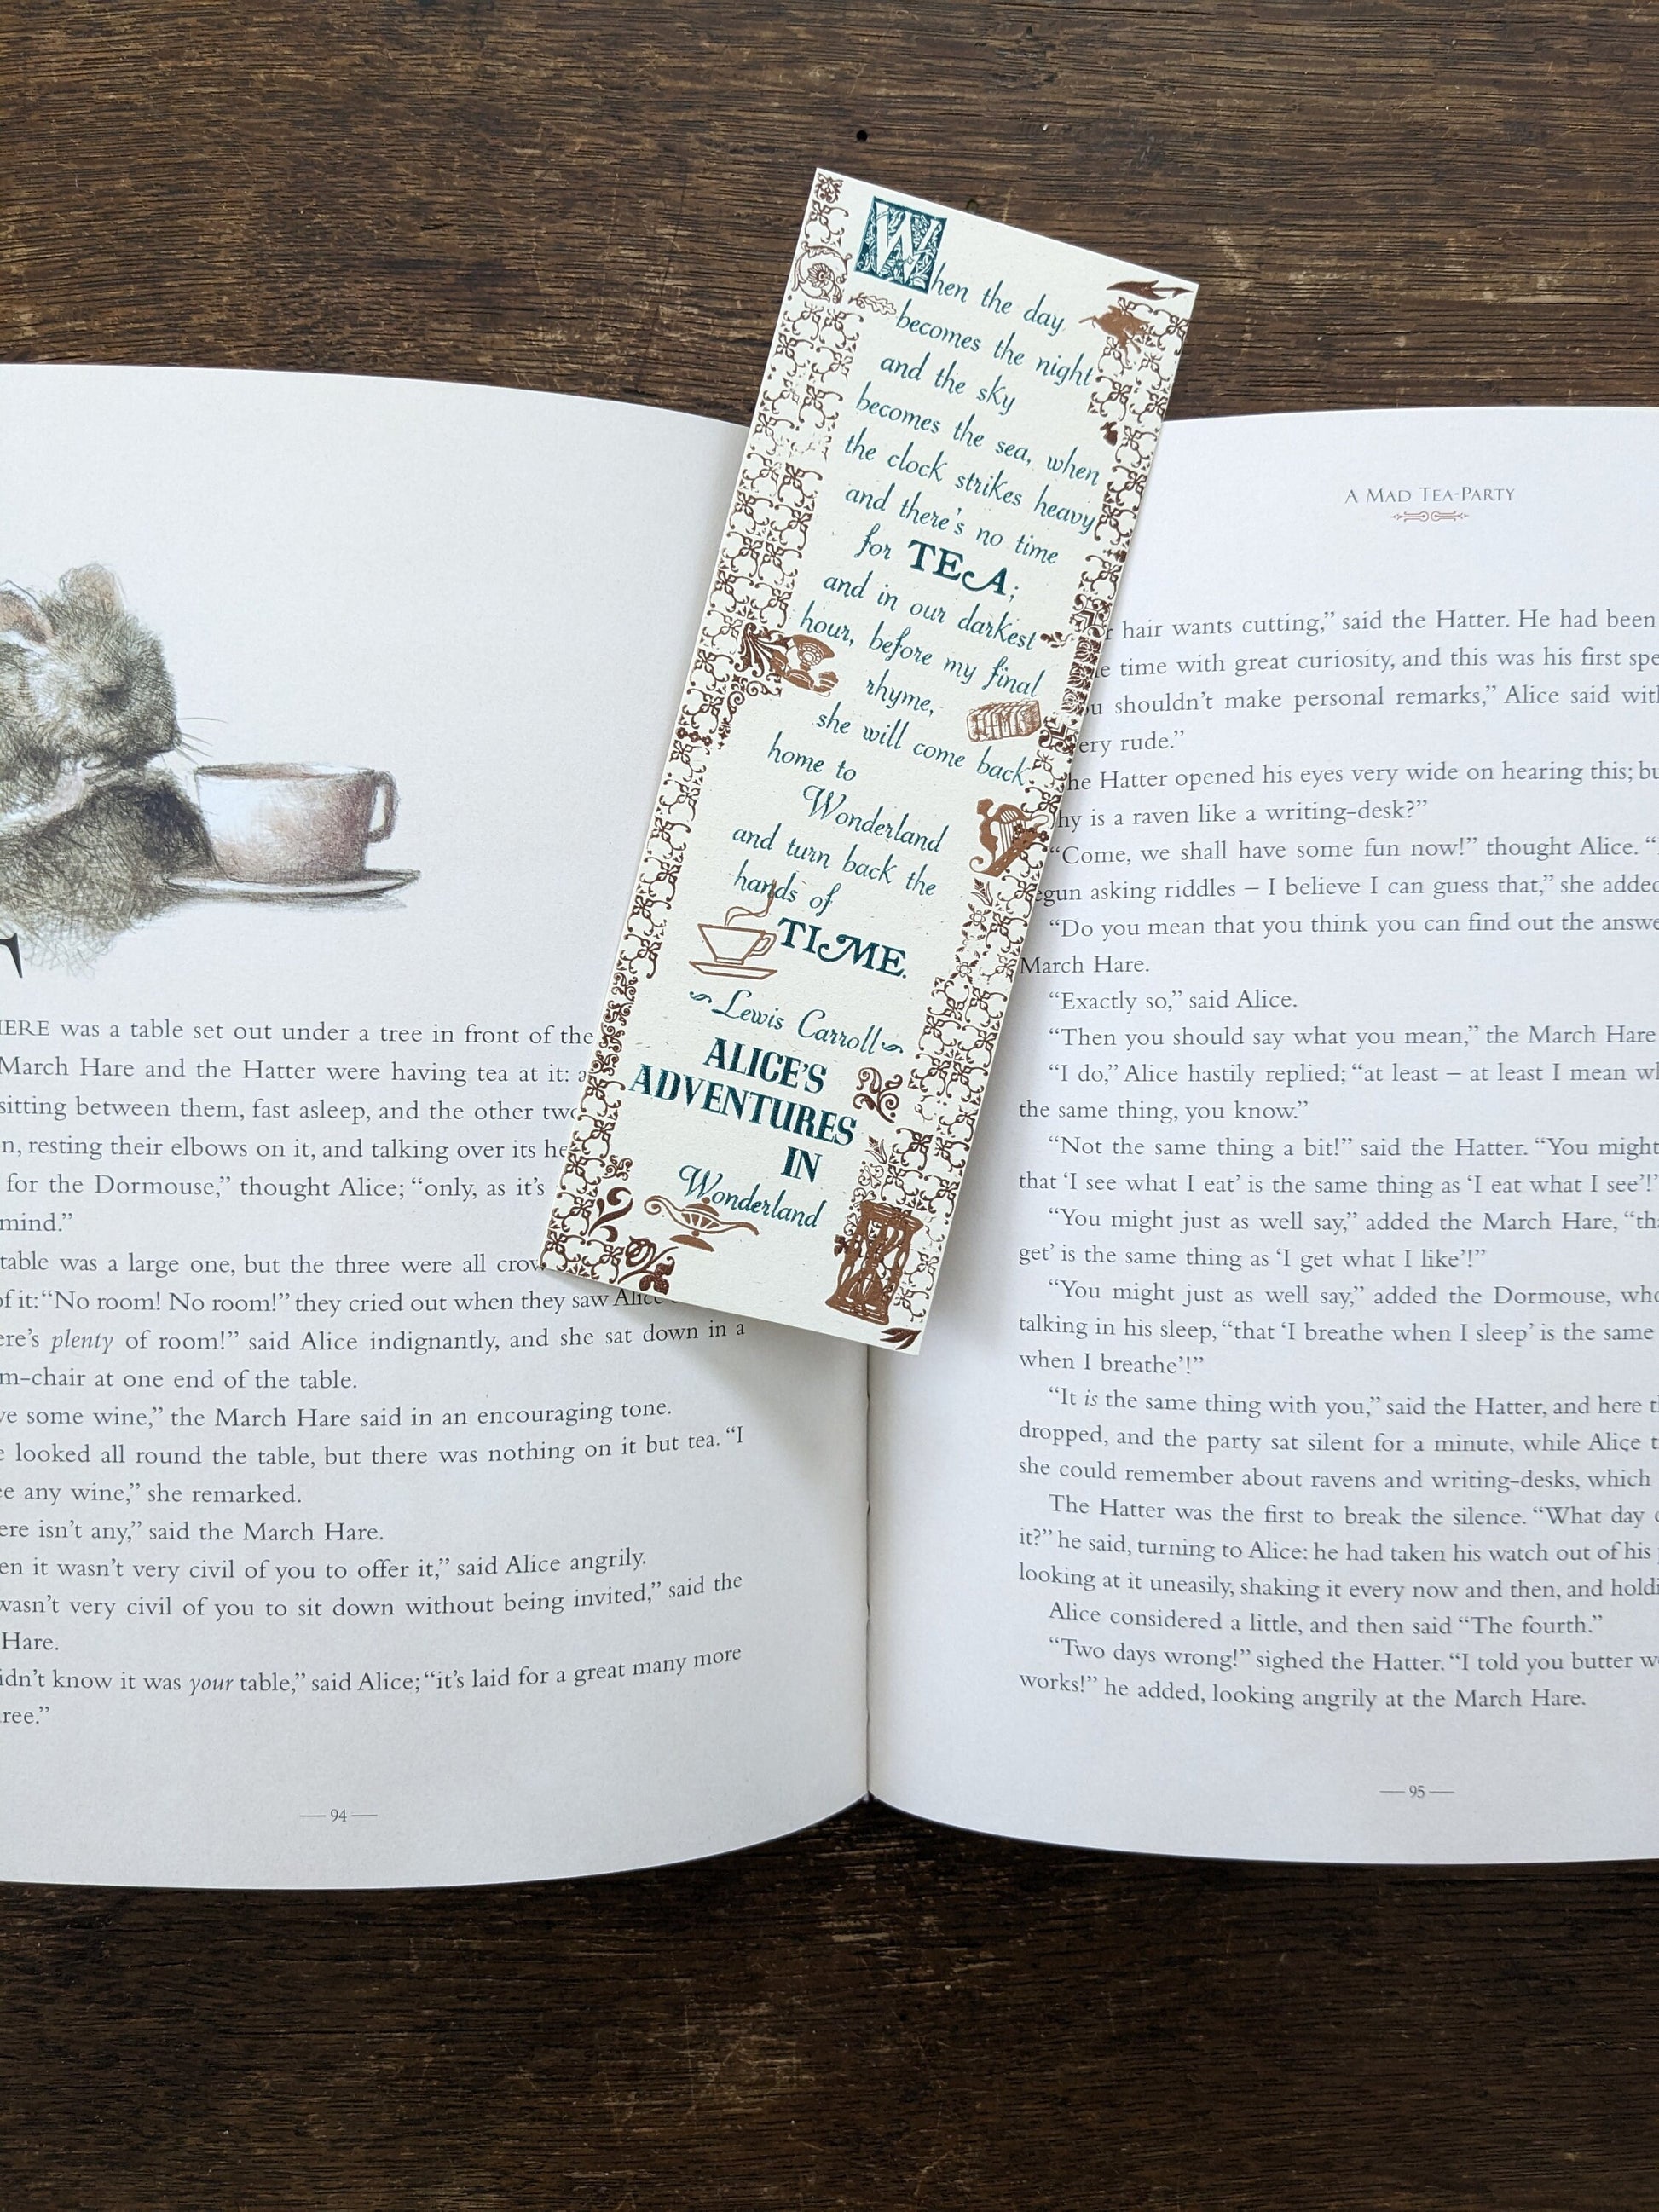 When the day
becomes the night
and the sky
becomes the sea, when
the clock strikes heavy
and there's no time
for TEA;
and in our darkest
hour, before my final
rhyme,
she will come back
home to
Wonderland
and turn back the
hands of
TIME.
Lewis Carroll
ALICE'S
ADVENTURES
IN
Wonderland
was a table set out under a tree in front of the
March Hare and the Hatter were having tea at it:
sitting between them, fast asleep, and the other two
resting their elbows on it, and talking over its
for the Dormouse,” thought Alice; “only, as it’s
mind.”
table was a large one, but the three were all
of it: “No room! No room!” they cried out when they saw Alice
plenty of room!” said Alice indignantly, and she sat down in a
m-chair at one end of the table.
some wine,” the March Hare said in an encouraging tone.
looked all round the table, but there was nothing on it but tea. “I
any wine,” she remarked.
isn’t any,” said the March Hare.
it wasn’t very civil of you to offer it,” said Alice angrily.
wasn’t very civil of you to sit down without being invited,” said the
Hare.
didn’t know it was your table,” said Alice; “it’s laid for a great many more
— 94 —
A MAD TEA-PARTY
hair wants cutting,” said the Hatter. He had been
time with great curiosity, and this was his first
shouldn’t make personal remarks,” Alice said
rude.”
Hatter opened his eyes very wide on hearing this;
is a raven like a writing-desk?”
“Come, we shall have some fun now!” thought Alice.
asking riddles – I believe I can guess that,” she added
“Do you mean that you think you can find out the
March Hare.
“Exactly so,” said Alice.
“Then you should say what you mean,” the March Hare
“I do,” Alice hastily replied; “at least – at least I mean
the same thing, you know.”
“Not the same thing a bit!” said the Hatter. “You might
that ‘I see what I eat’ is the same thing as ‘I eat what I see’!”
“You might just as well say,” added the March Hare,
get’ is the same thing as ‘I get what I like’!”
“You might just as well say,” added the Dormouse,
talking in his sleep, “that ‘I breathe when I sleep’ is the same
when I breathe’!”
“It is the same thing with you,” said the Hatter, and here
dropped, and the party sat silent for a minute, while Alice
she could remember about ravens and writing-desks, which
The Hatter was the first to break the silence. “What day
it?” he said, turning to Alice: he had taken his watch out of his
looking at it uneasily, shaking it every now and then, and
Alice considered a little, and then said “The fourth.”
“Two days wrong!” sighed the Hatter. “I told you butter
works!” he added, looking angrily at the March Hare.
— 95 —